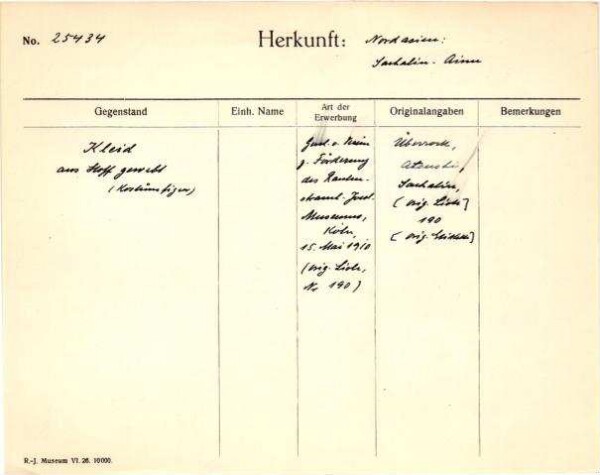 No. 25434
Herkunft: Nordasien:
Sachalin-Ainu
Gegenstand
Einh. Name
Art der
Erwerbung
Originalangaben
Bemerkungen
Kleid
aus Stoff gewebt
(Kostümfigur)
Gesch. v. Verein
z. Förderung
des Rauten-
strauch-Joest-
Museums,
Köln,
15. Mai 1910
(orig. Liste,
Nr 190)
Überrock,
Sachalin,
(orig. Liste]
190
[orig. Etikette]
R.-J. Museum VI. 26. 10000.